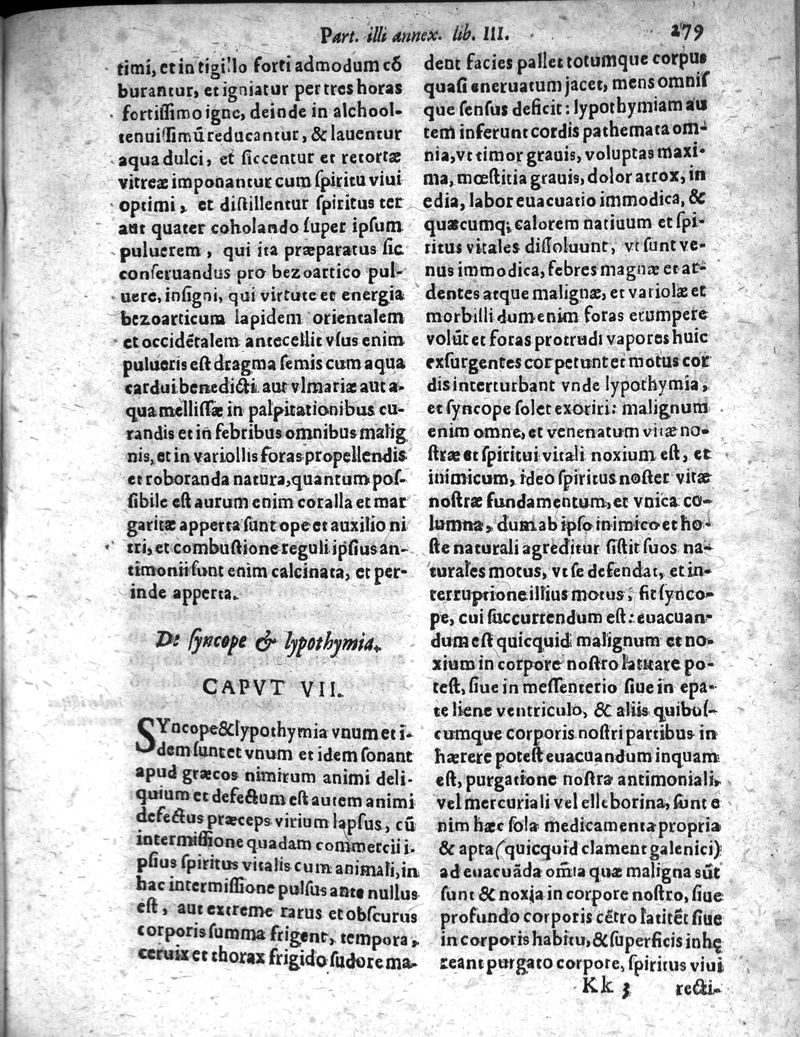 Part. illi annex. lib. III. 279
timi, et in tigillo forti admodum cō
burantur, et igniatur per tres horas
fortiſſimo igne, deinde in alchool-
tenuiſſimū reducantur, & lauentur
aqua dulci, et ſiccentur et retortæ
vitreæ imponantur cum ſpiritu viui
optimi, et diſtillentur ſpiritus ter
aut quater coholando ſuper ipſum
puluerem, qui ita præparatus ſic
conſeruandus pro bezoartico pul-
uere, inſigni, qui virtute et energia
bezoarticum lapidem orientalem
et occidētalem antecellit vſus enim
pulueris eſt dragma ſemis cum aqua
cardui benedicti aut vlmariæ aut a-
qua melliſſæ in palpitationibus cu-
randis et in febribus omnibus malig
nis, et in variollis foras propellendis
et roboranda natura, quantum poſ-
ſibile eſt aurum enim coralla et mar
garitæ apperta ſunt ope et auxilio ni
tri, et combuſtione reguli ipſius an-
timonii ſunt enim calcinata, et per-
inde apperta.
De ſyncope & lypothymia.
CAPVT VII.
SYncope & lypothymia vnum et i-
dem ſunt et vnum et idem ſonant
apud græcos nimirum animi deli-
quium et defectum eſt autem animi
defectus præceps virium lapſus, cū
intermiſſione quadam commercii i-
pſius ſpiritus vitalis cum animali, in
hac intermiſſione pulſus ante nullus
eſt, aut extreme rarus et obſcurus
corporis ſumma frigent, tempora,
ceruix et thorax frigido ſudore ma-
dent facies pallet totumque corpus
quaſi eneruatum jacet, mens omniſ
que ſenſus deficit: lypothymiam au
tem inferunt cordis pathemata om-
nia, vt timor grauis, voluptas maxi-
ma, mœſtitia grauis, dolor atrox, in
edia, labor euacuatio immodica, &
quæcumq; calorem natiuum et ſpi-
ritus vitales diſſoluunt, vt ſunt ve-
nus immodica, febres magnæ et ar-
dentes atque malignæ, et variolæ et
morbilli dum enim foras erumpere
volūt et foras protrudi vapores huic
exſurgentes cor petunt et motus cor
dis interturbant vnde lypothymia,
et ſyncope ſolet exoriri: malignum
enim omne, et venenatum vitæ no-
ſtræ et ſpiritui vitali noxium eſt, et
inimicum, ideo ſpiritus noſter vitæ
noſtræ fundamentum, et vnica co-
lumna, dum ab ipſo inimico et ho-
ſte naturali agreditur ſiſtit ſuos na-
turales motus, vt ſe defendat, et in-
terruptione illius motus, fit ſynco-
pe, cui ſuccurrendum eſt: euacuan-
dum eſt quicquid malignum et no-
xium in corpore noſtro latitare po-
teſt, ſiue in meſſenterio ſiue in epa-
te liene ventriculo, & aliis quibuſ-
cumque corporis noſtri partibus in
hærere poteſt euacuandum inquam
eſt, purgatione noſtra antimoniali,
vel mercuriali vel elleborina, ſunt e
nim hæc ſola medicamenta propria
& apta (quicquid clament galenici)
ad euacuāda om̄ia quæ maligna sūt
ſunt & noxia in corpore noſtro, ſiue
profundo corporis cētro latitēt ſiue
in corporis habitu, & ſuperficis inhę
reant purgato corpore, ſpiritus viui
Kk 3 recti-